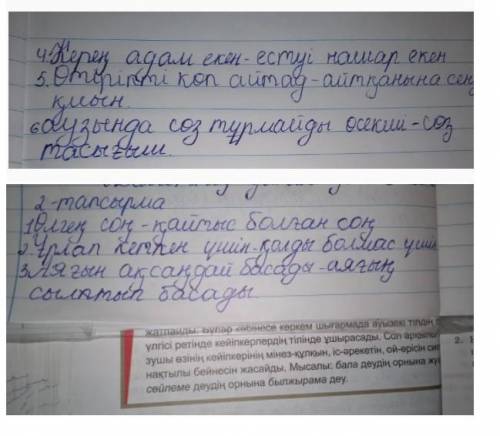 4. Керең адам екен-естуі нашар екен
5. Өтірікті көп айтад-айтқанына сену
қиын.
6 аузында сөз тұрмайды өсекші-сөз
тасығыш.
2-тапсырма
1 Өлген соң-қайтыс болған соң
2. Ұрлап кеткен үшін-қолды болмас үшін
3. Аяғын ақсаңдай басады-аяғын
сылтып басады.
жатпайды. Бұлар көбінесе көркем шығармада ауызекі тілдің
үлгісі ретінде кейіпкерлердің тілінде ұшырасады. Сол арқылы
зушы өзінің кейіпкерінің мінез-құлқын, іс-әрекетін, ой-өрісін
нақтылы бейнесін жасайды. Мысалы: бала деудің орнына
сөйлеме деудің орнына былжырама деу.
2.